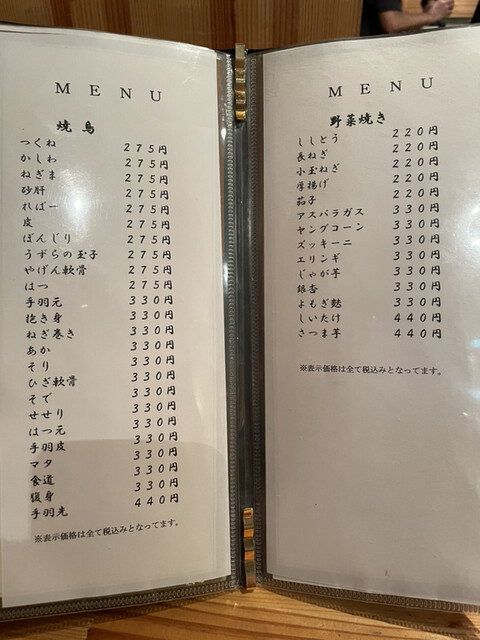 MENU
焼鳥
つくね 275円
かしわ 275円
ねぎま 275円
砂肝 275円
ればー 275円
皮 275円
ぼんじり 275円
うずらの玉子 275円
やげん軟骨 275円
はつ 275円
手羽元 330円
抱き身 330円
ねぎ巻き 330円
あか 330円
そり 330円
ひざ軟骨 330円
そで 330円
せせり 330円
はつ元 330円
手羽皮 330円
マタ 330円
食道 330円
腹身 330円
手羽先 440円
※表示価格は全て税込みとなってます。
MENU
野菜焼き
ししとう 220円
長ねぎ 220円
小玉ねぎ 220円
厚揚げ 220円
茄子 220円
アスパラガス 330円
ヤングコーン 330円
ズッキーニ 330円
エリンギ 330円
じゃが芋 330円
銀杏 330円
よもぎ麩 330円
しいたけ 440円
さつま芋 440円
※表示価格は全て税込みとなってます。